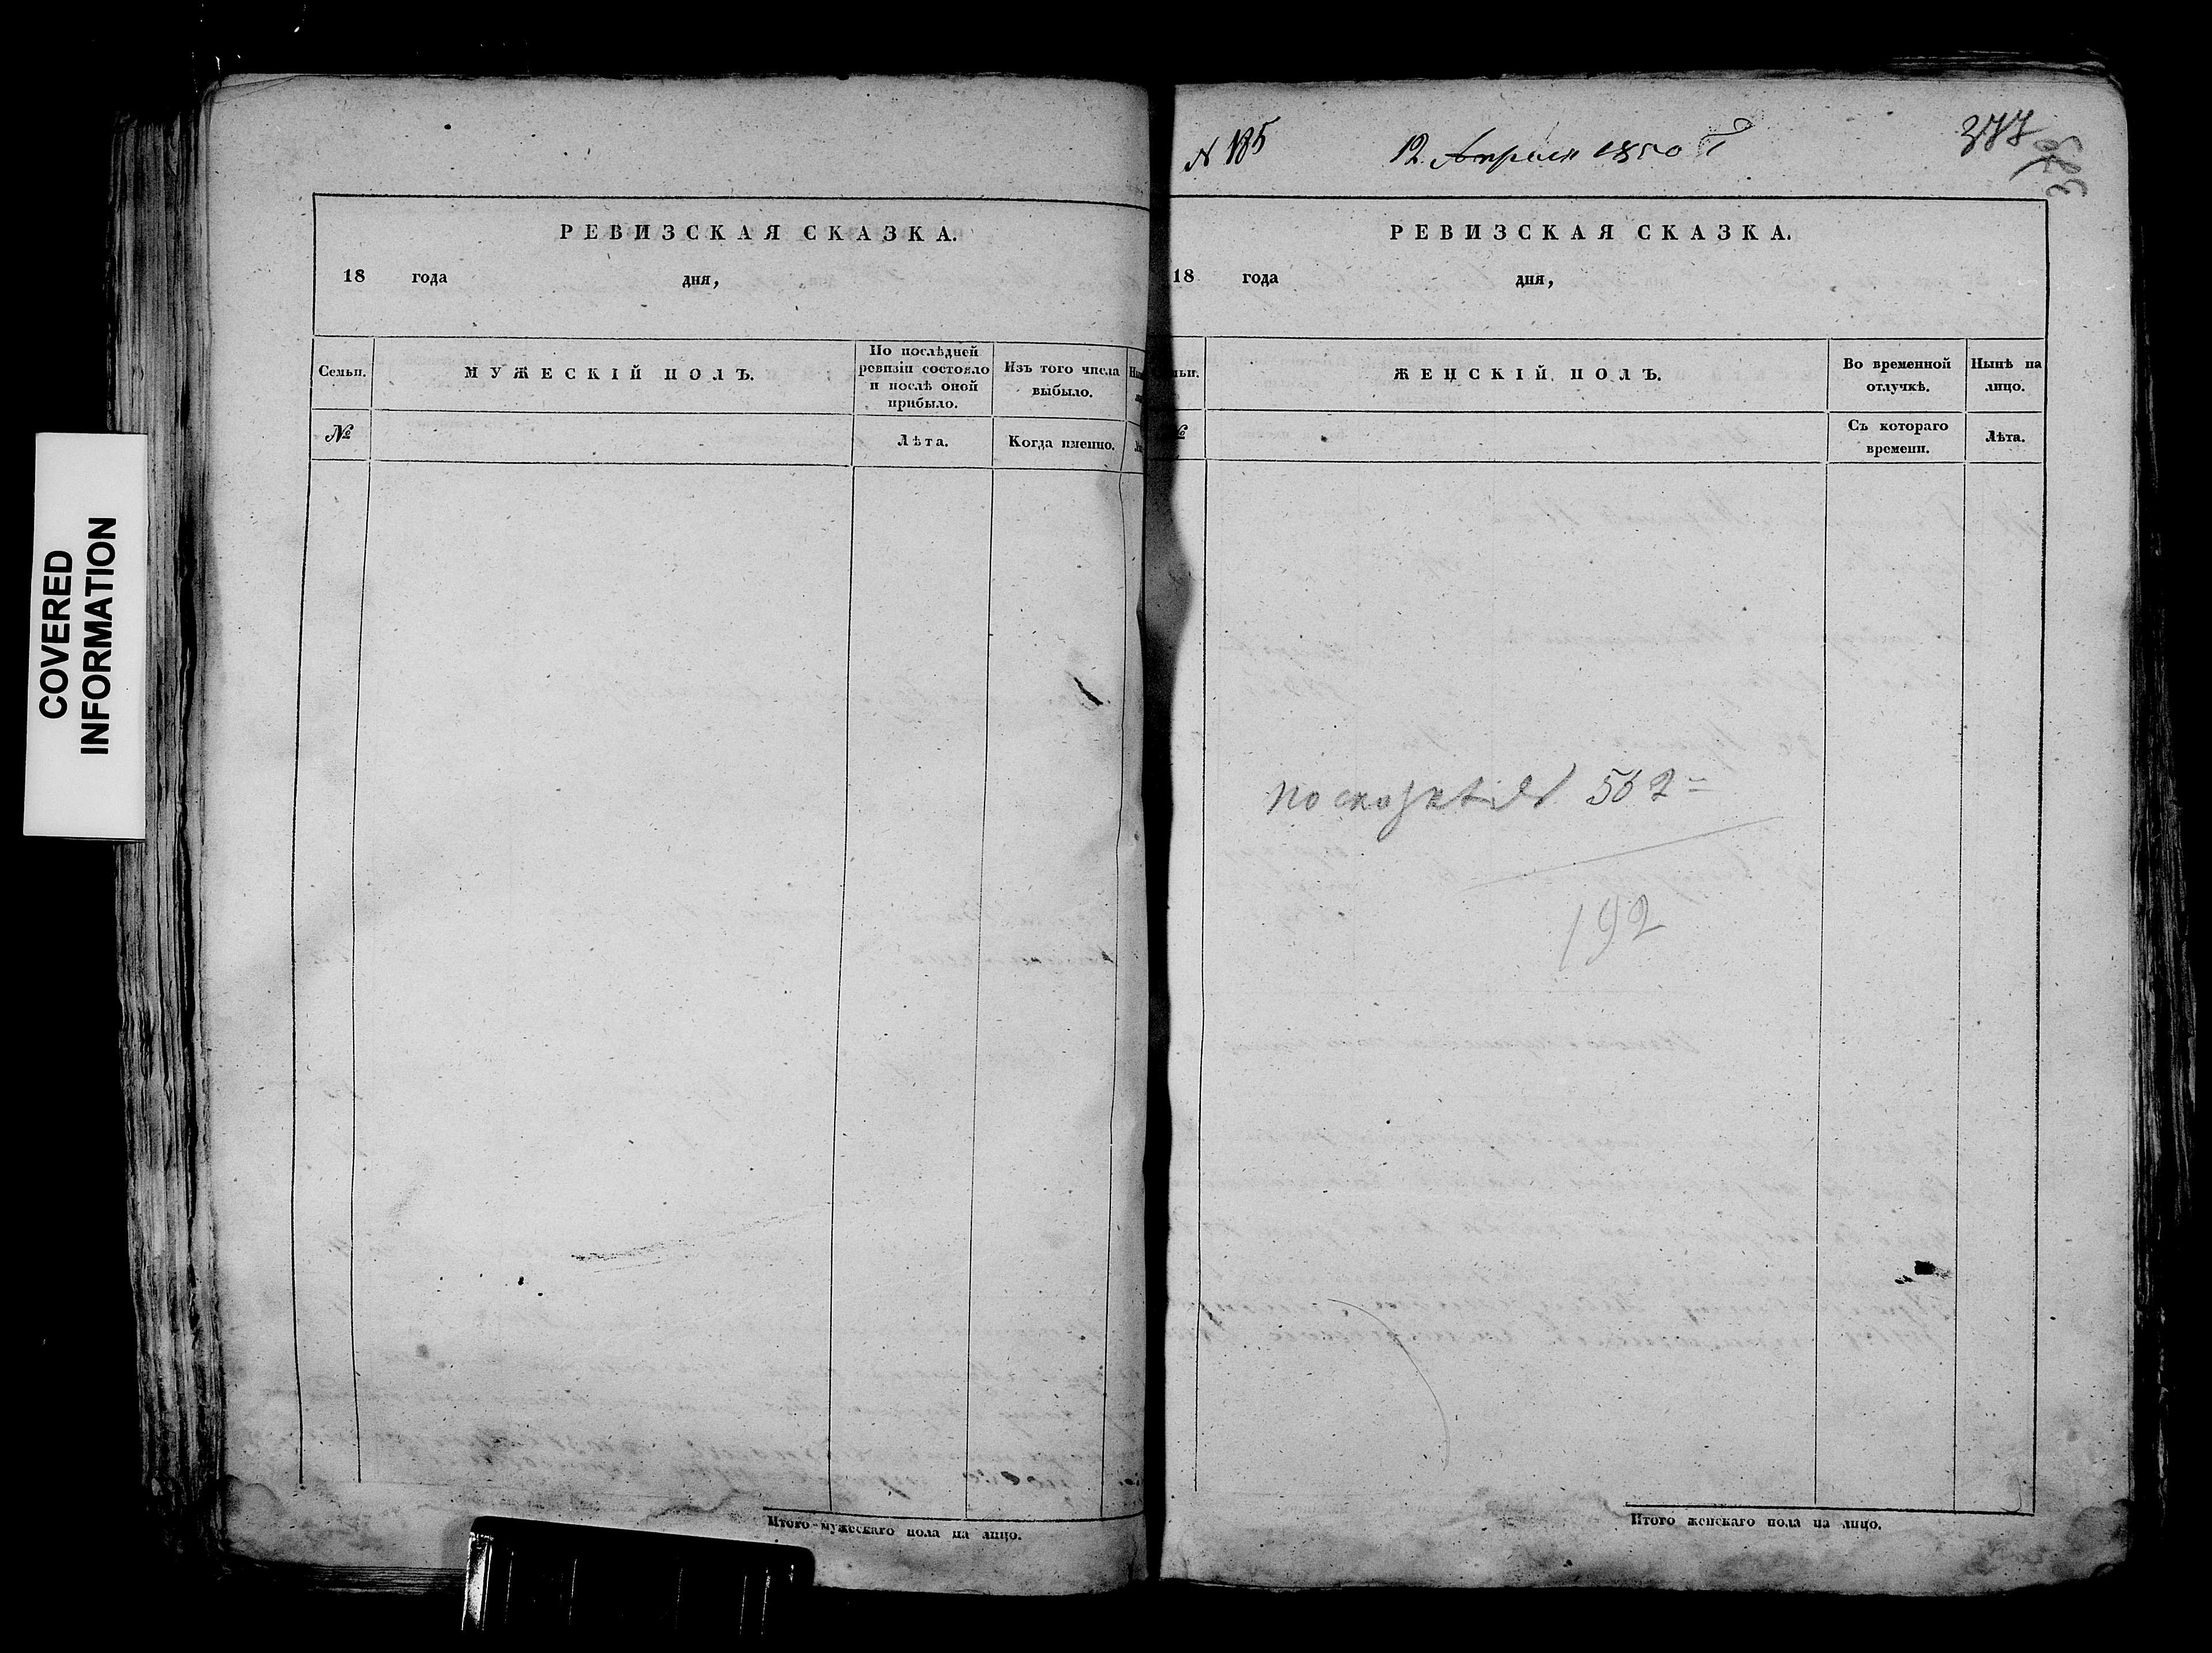 COVERED
INFORMATION
РЕВИЗСКАЯ СКАЗКА.
18 года дня,
Семьи. МУЖЕСКІЙ ПОЛЪ. По послѣдней ревизіи состояло и послѣ оной прибыло. Изъ того числа выбыло.
№ Лѣта. Когда именно.
Итого мужескаго пола на лицо.
N 185 12 Апреля 1850 Г 377
РЕВИЗСКАЯ СКАЗКА.
18 года дня,
ЖЕНСКІЙ ПОЛЪ. Во временной отлучкѣ. Нынѣ на лицо.
№ Съ котораго времени. Лѣта.
562
192
Итого женскаго пола на лицо.